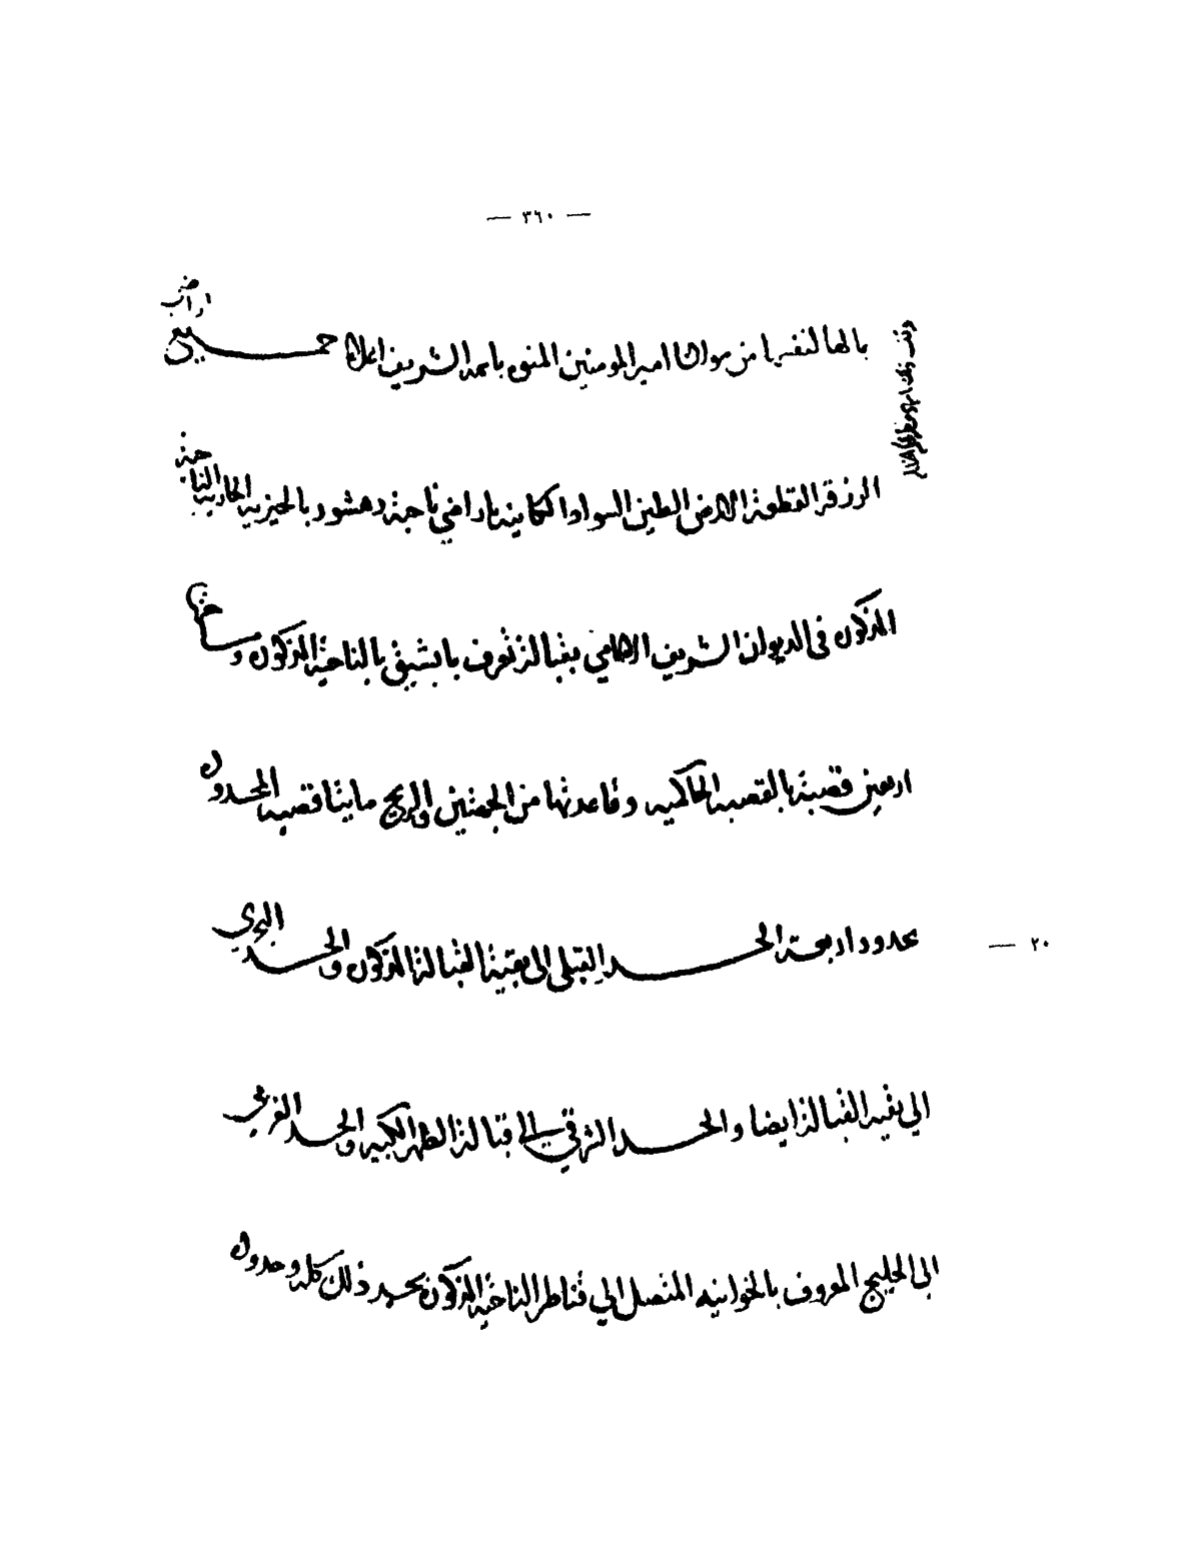 — ٣٦٠ —
بمالها لنفسها من مولانا امير المومنين المنوه باسمه الشريف اعلاه جميع اراضى
الرزقه القطعة الارض الطين السواد الكاينه باراضي ناحية دهشور بالجيزيه الجاريه الناحية
المذكوره فى الديوان الشريف الامامي بقبالة تعرف بابشيش بالناحية المذكوره ومساحتها
اربعين قصبة بالقصبه الحاكميه وقاعدتها من الجهتين والربح مايتا قصبه المحدوده
بحدود اربعة الحد القبلى الى بقية القبالة المذكوره والحد البحري
الي بقيه القبالة ايضا والحد الشرقي الى قبالة الظهر الكبير والحد الغربي
٢٠ —
الى الخليج المعروف بالخوانيه المتصل الي قناطر الناحية المذكوره بحد ذلك كله وحدوده